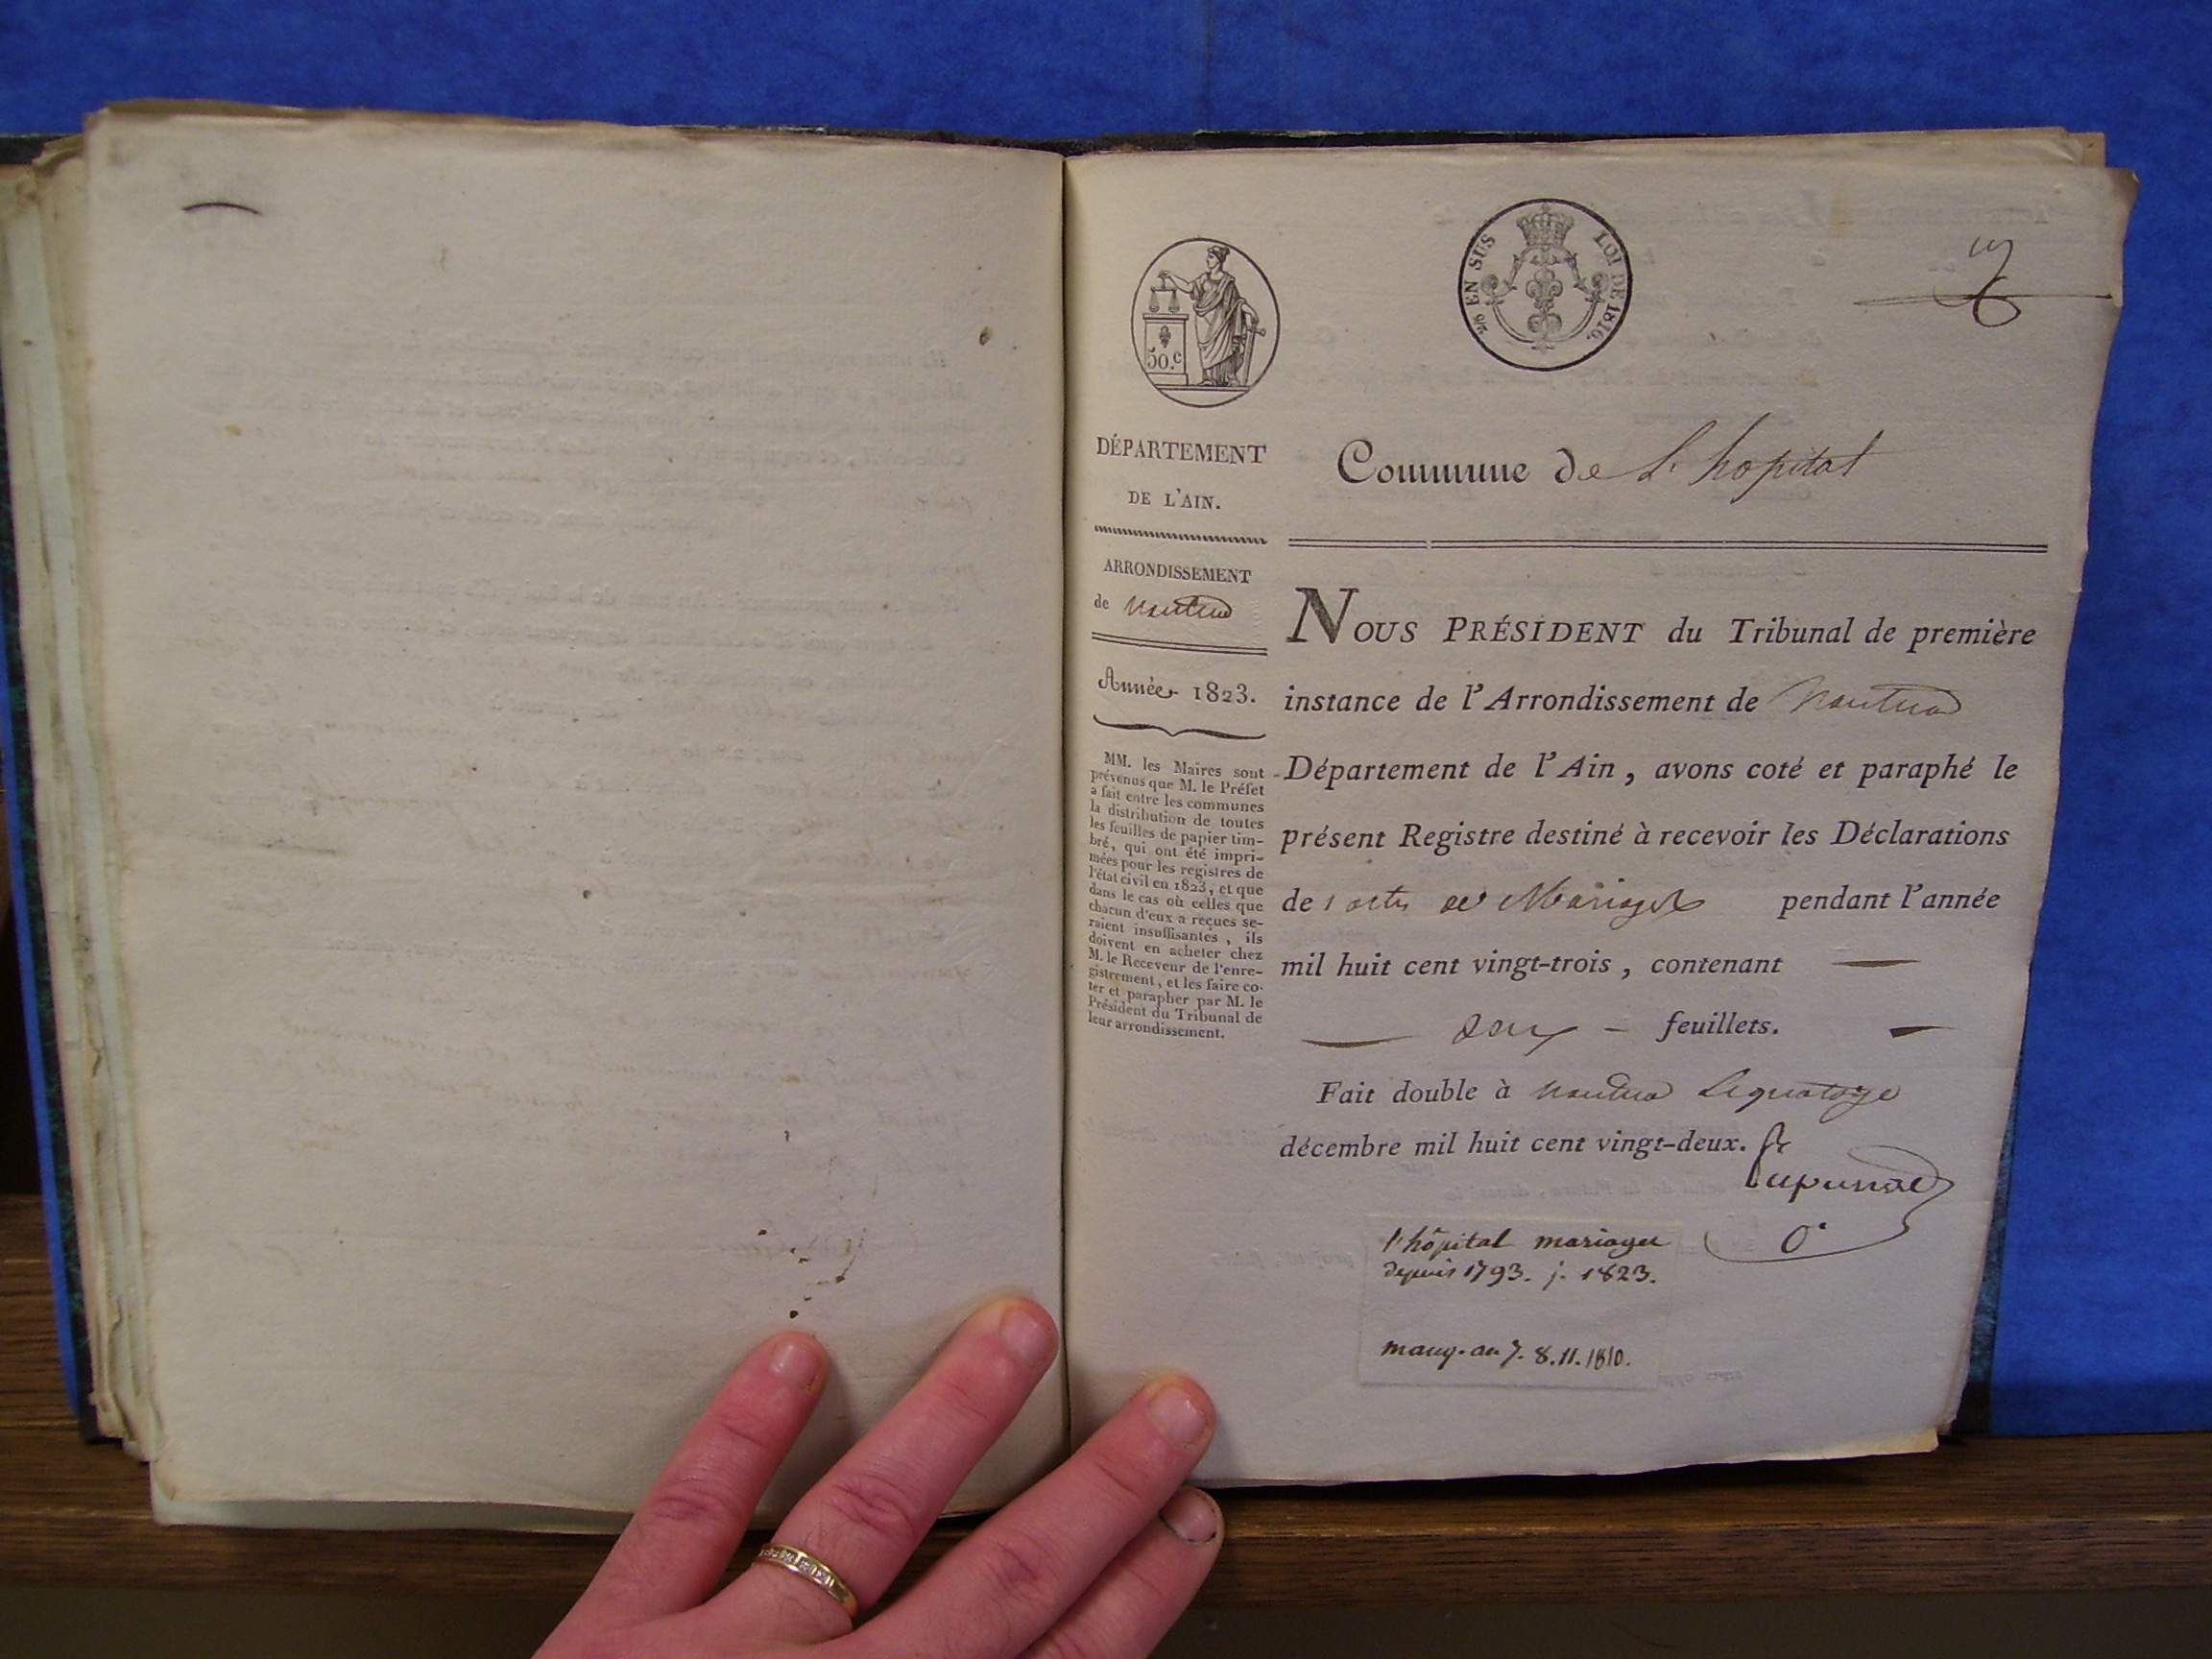 50.c
2/6 EN SUS LOI DE 1816.
DÉPARTEMENT
DE L'AIN.
ARRONDISSEMENT
de Nantua
Année 1823.
MM. les Maires sont
prévenus que M. le Préfet
a fait entre les communes
la distribution de toutes
les feuilles de papier tim-
bré, qui ont été impri-
mées pour les registres de
l'état civil en 1823, et que
dans le cas où celles que
chacun d'eux a reçues se-
raient insuffisantes, ils
doivent en acheter chez
M. le Receveur de l'enre-
gistrement, et les faire co-
ter et parapher par M. le
Président du Tribunal de
leur arrondissement.
Commune de L'hopital
NOUS PRÉSIDENT du Tribunal de première
instance de l'Arrondissement de Nantua
Département de l'Ain, avons coté et paraphé le
présent Registre destiné à recevoir les Déclarations
de actes de Mariages pendant l'année
mil huit cent vingt-trois, contenant
deux feuillets.
Fait double à Nantua le quatorze
décembre mil huit cent vingt-deux.
l'hôpital mariages
depuis 1793. j. 1823.
manq. an 7. 8. 11. 1810.